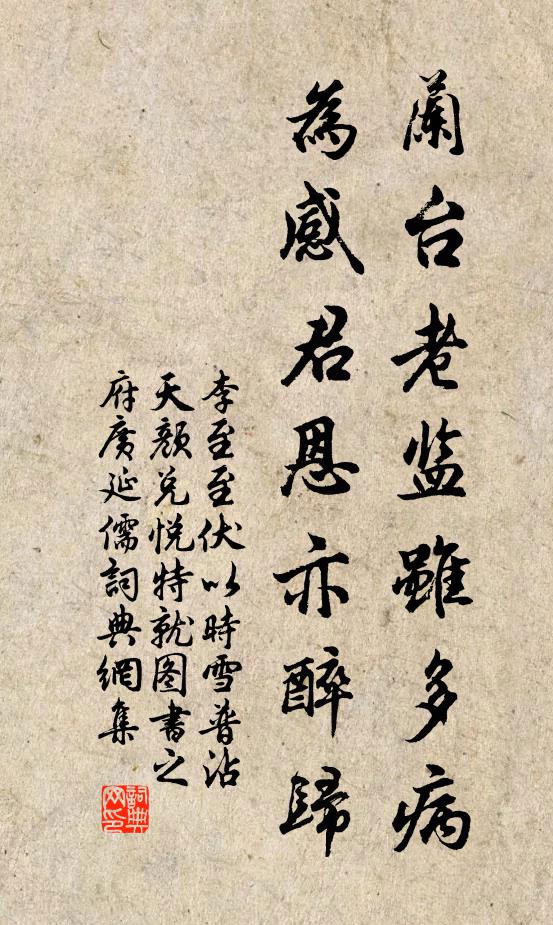 蘭台老监雖多病
為感君恩亦醉歸
李至至伏以時雪普沾
天顏兑悦特就图書之
府廣延儒詞典網集
詞典网印